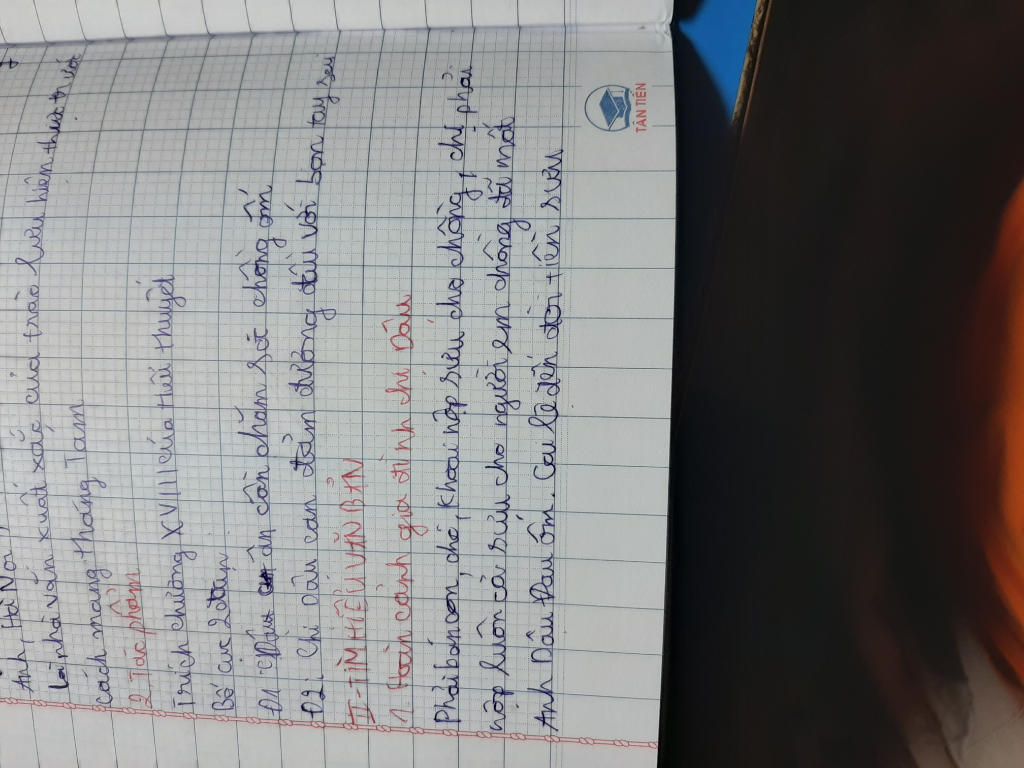 Anh Hà Nội
Là nhà văn xuất xắc của trào lưu hiện thực trước
cách mạng tháng Tám
2 Tác phẩm
Trích chương XVIII của tiểu thuyết
Bố cục 2 đoạn
Đ1 ân cần chăm sóc chồng ốm
Đ2: Chị Dậu can đảm đương đầu với bọn tay sai
II-TÌM HIỂU VĂN BẢN
1. Hoàn cảnh gia đình chị Dậu
Phải bán con, chó, khoai nộp sưu cho chồng, chị phải
nộp luôn cả sưu cho người em chồng đã mất
Anh Dậu đau ốm. Cai lệ đến đòi tiền sưu
TÂN TIẾN